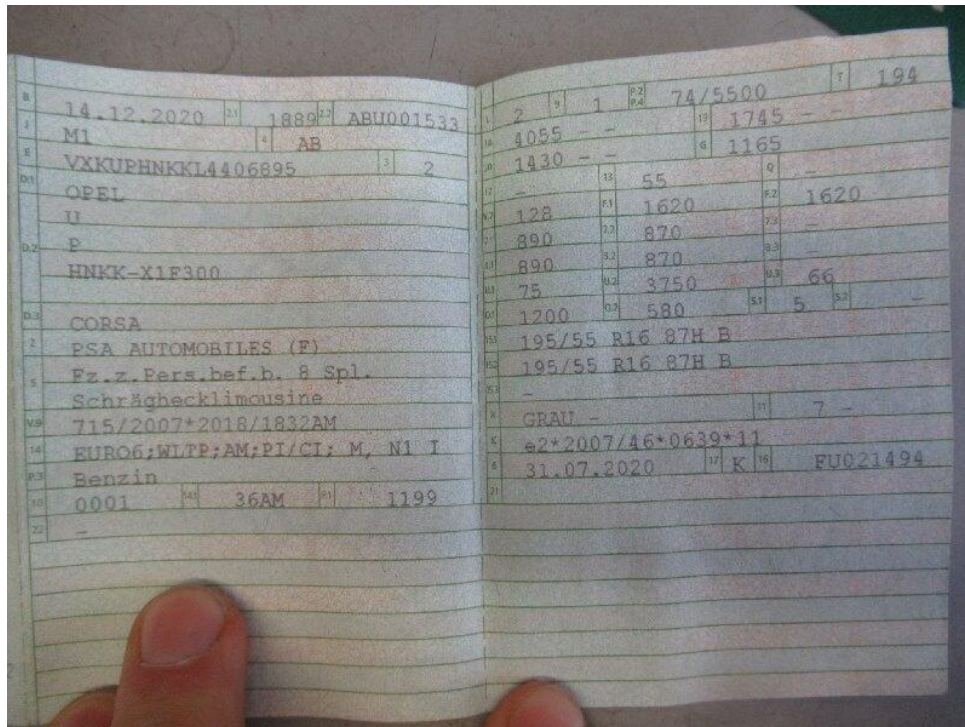 B 14.12.2020 2.1 1889 2.2 ABU001533
J M1 4 AB
E VXKUPHNKKL4406895 3 2
D.1 OPEL
U
D.2 P
HNKK-X1F300
D.3 CORSA
2 PSA AUTOMOBILES (F)
5 Fz.z.Pers.bef.b. 8 Spl.
Schräghecklimousine
V.9 715/2007*2018/1832AM
14 EURO6;WLTP;AM;PI/CI; M, N1 I
P.3 Benzin
10 0001 14.1 36AM P.1 1199
22 -
L 2 9 1 P.2 P.4 74/5500 T 194
18 4055 - - 19 1745 - -
20 1430 - - G 1165
12 - 13 55 Q -
V.7 128 F.1 1620 F.2 1620
7.1 890 7.2 870 7.3 -
8.1 890 8.2 870 8.3 -
U.1 75 U.2 3750 U.3 66
O.1 1200 O.2 580 S.1 5 S.2 -
15.1 195/55 R16 87H B
15.2 195/55 R16 87H B
15.3 -
R GRAU - 11 7 -
K e2*2007/46*0639*11
6 31.07.2020 17 K 16 FU021494
21